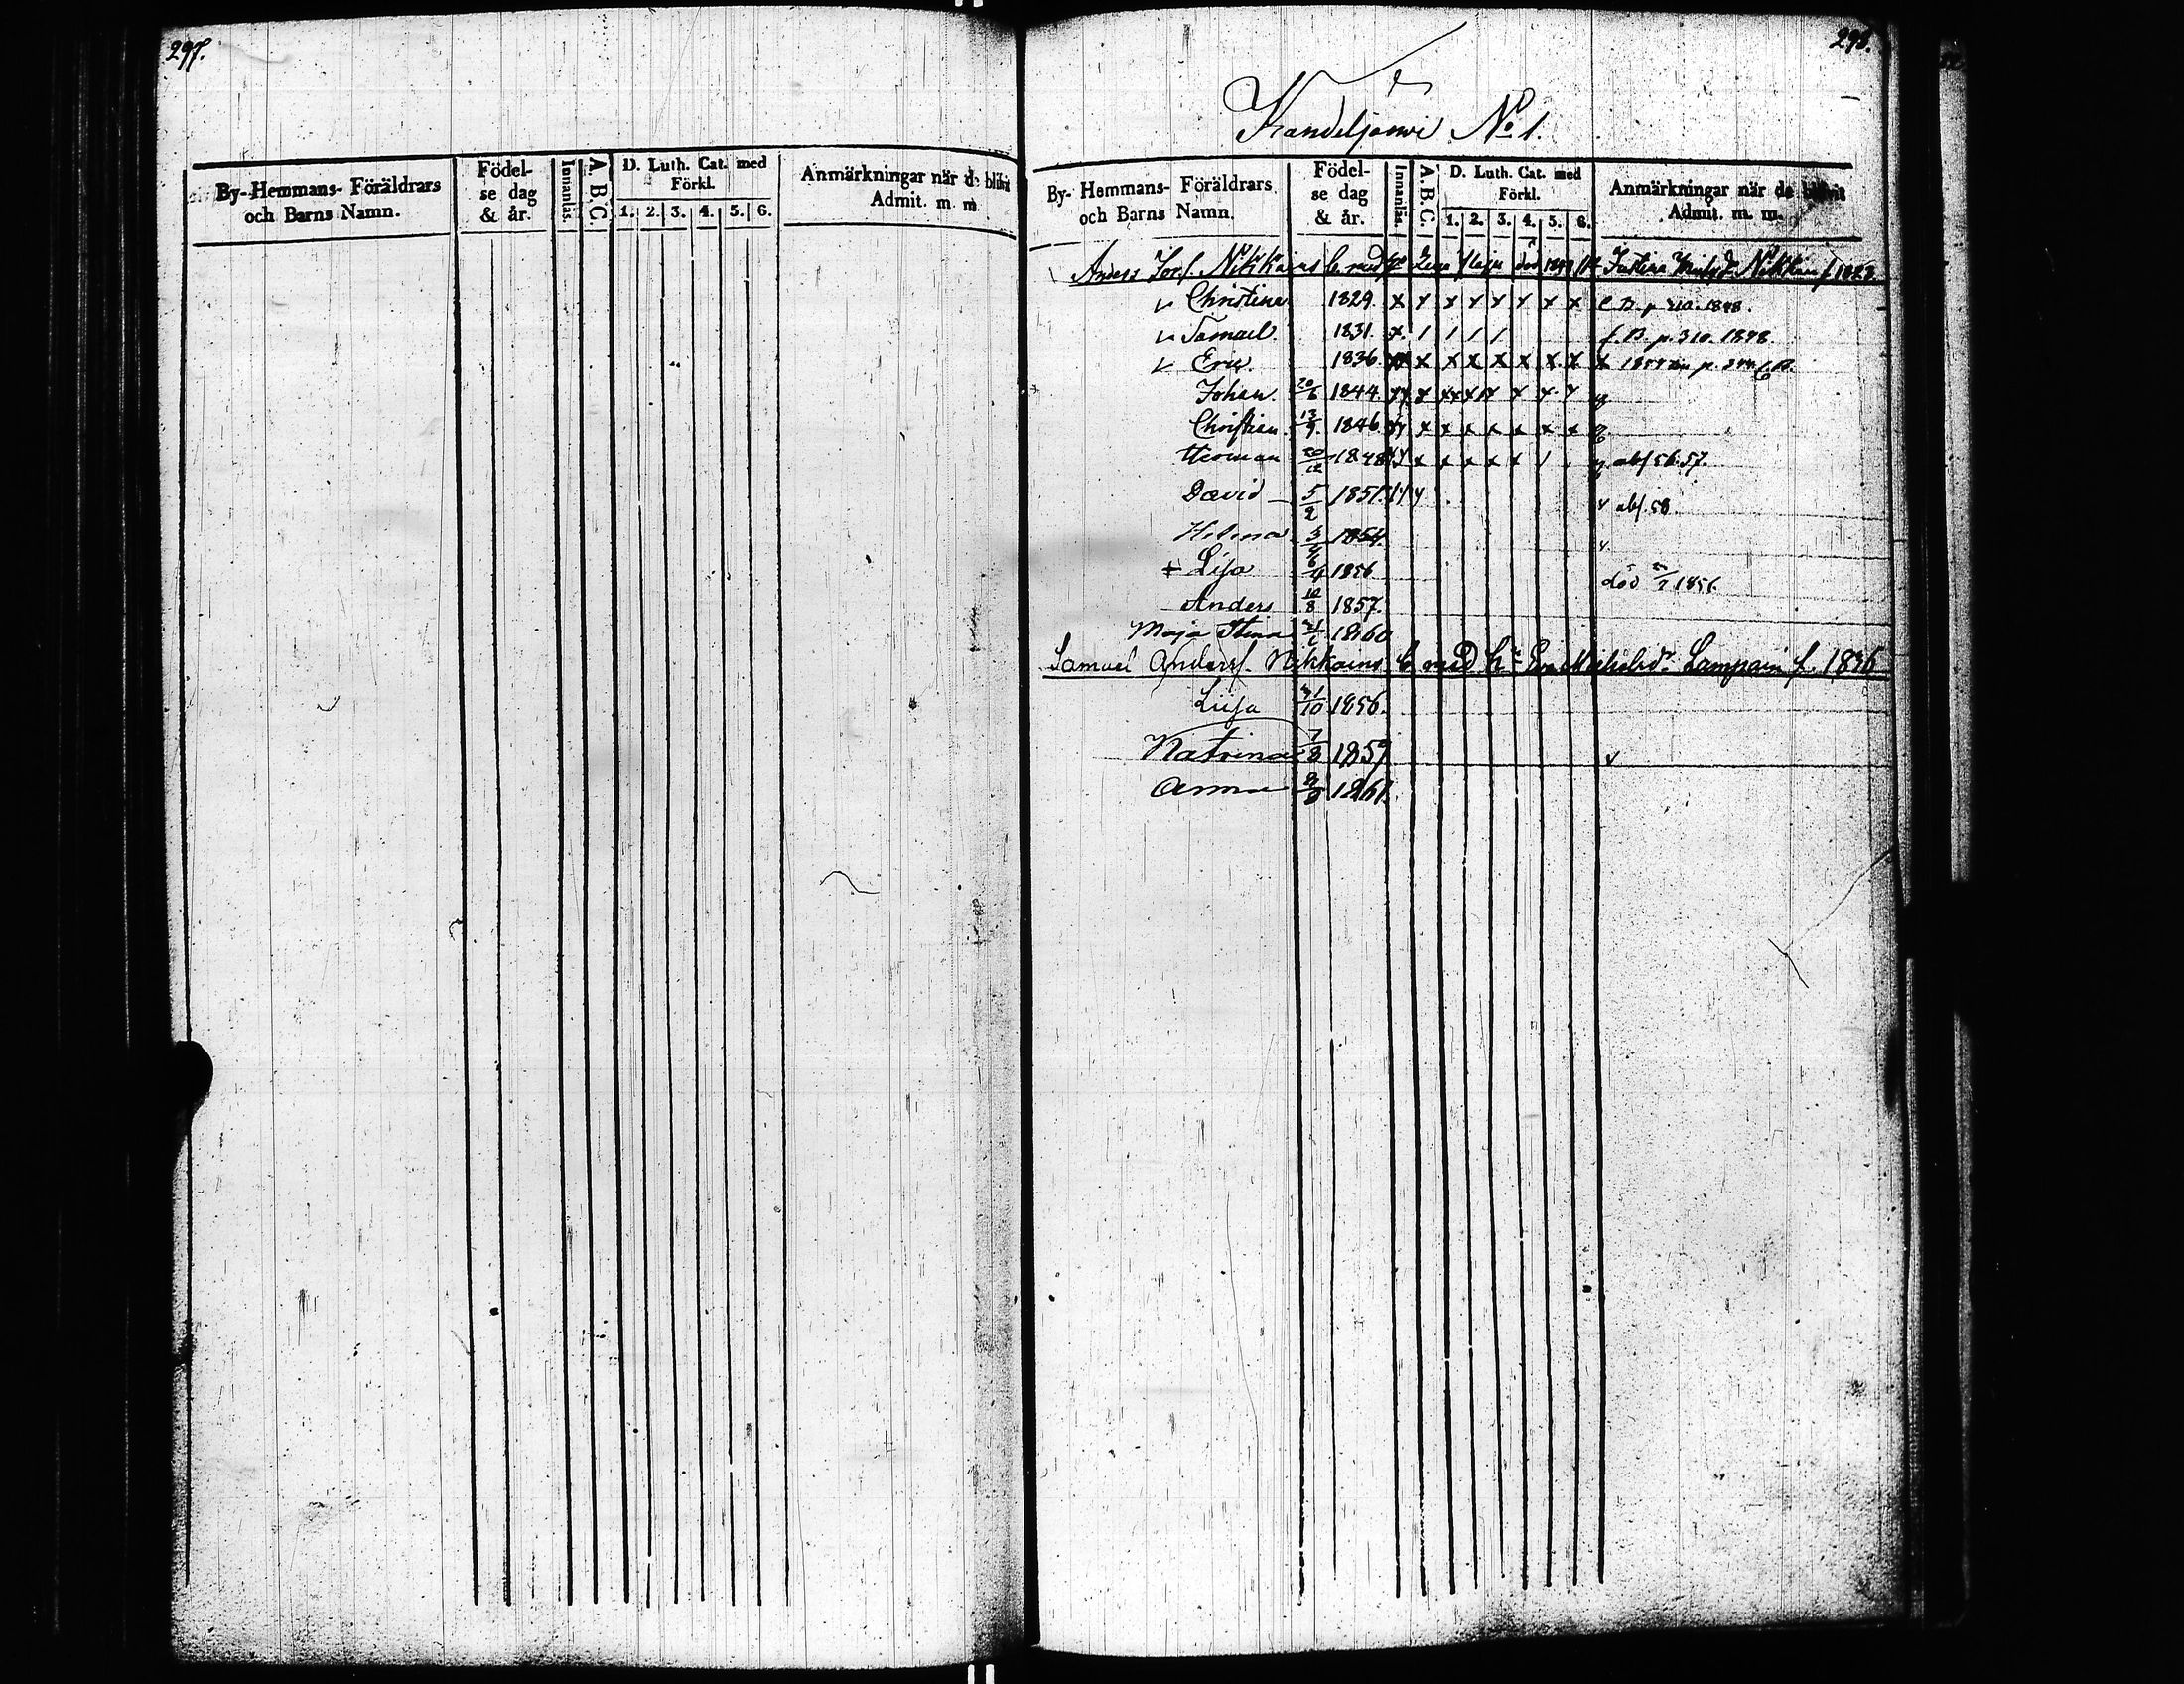 297.
By- Hemmans- Föräldrars och Barns Namn.
Födelse dag & år.
Innanläs.
A. B. C.
D. Luth. Cat. med Förkl.
1. 2. 3. 4. 5. 6.
Anmärkningar när de blifvit Admit. m. m.
298.
No 1.
By- Hemmans- Föräldrars och Barns Namn.
Födelse dag & år.
Innanläs.
A. B. C.
D. Luth. Cat. med Förkl.
1. 2. 3. 4. 5. 6.
Anmärkningar när de blifvit Admit. m. m.
Anders Nikkains med 1823.
Christina 1829. x x x x x x x x 1848.
Samuel. 1831. x / / / / f. B. p. 310. 1848.
Eric. 1836. x x x x x x x x
Johan. 20/6 1844
Christian. 13/9. 1846 x x x x x x x
Herman 20/12 1848 x x x x x / abs 56. 57.
David 5/2 1851. abs. 58
1854.
+ Lisa 6/4 1856 död 1856
Anders 10/8 1857.
Maja Stina 1860
Samuel Anders. Nikkains med h. Lampain f. 1836
Liisa 31/10 1856.
Katrina 7/8 1859
Anna 1861.